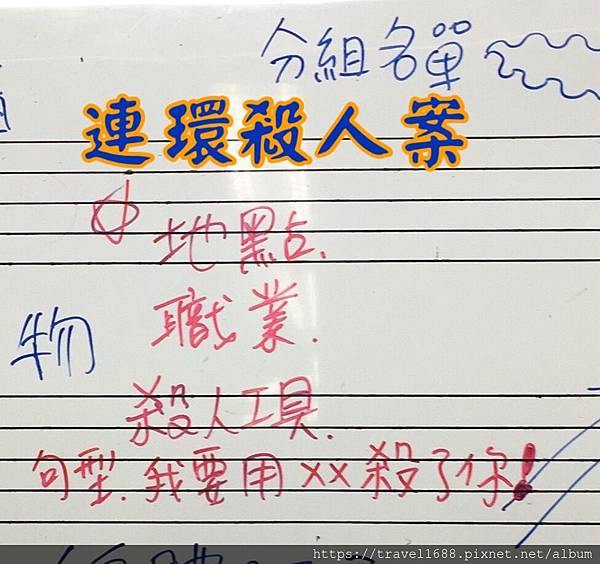 分組名單
連環殺人案
地點.
職業.
物
殺人工具.
句型.我要用××殺了你!
https://travel1688.pixnet.net/album